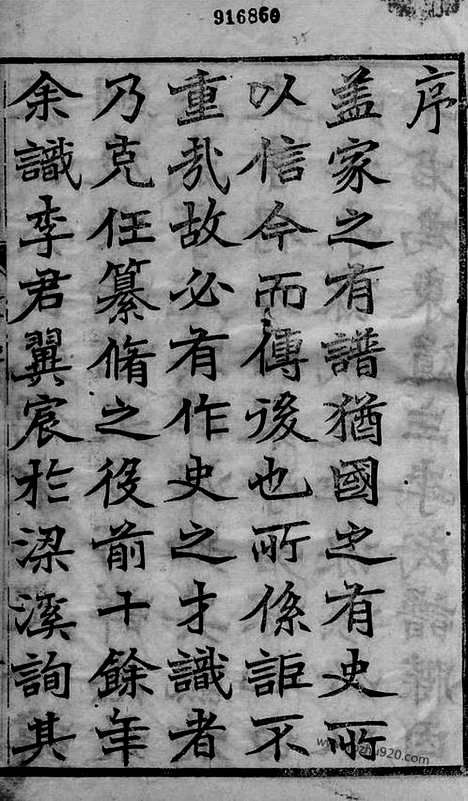 916860
序
蓋家之有譜猶國之有史所
以信今而傳後也所係詎不
重哉故必有作史之才識者
乃克任纂脩之役前十餘年
余識李君翼宸於梁溪詢其